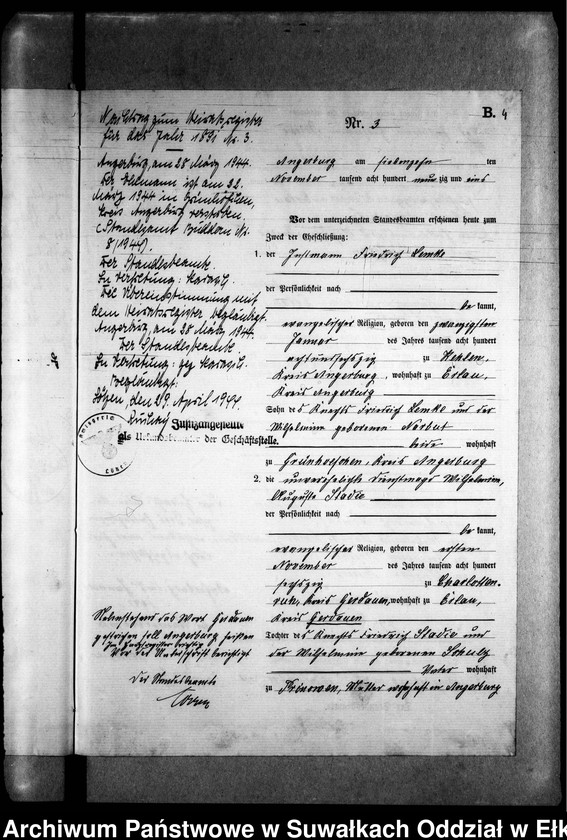 B. 4
Nr. 3
Nachtrag zum Heiratsregister
für das Jahr 1891 Nr. 3.
Angerburg, am 28. März 1944.
Der Ehemann ist am 22.
März 1944 in
Kreis Angerburg verstorben.
(Standesamt Nr.
8/1944).
Der Standesbeamte.
In Vertretung:
Die Übereinstimmung mit
dem Heiratsregister beglaubigt.
Angerburg, am 28. März 1944.
Der Standesbeamte
In Vertretung: gez.
Beglaubigt.
Lötzen, den 29. April 1944.
Justizangestellte
als Urkundsbeamter der Geschäftsstelle.
Angerburg am siebenzehn ten
November tausend acht hundert neunzig und eins
Vor dem unterzeichneten Standesbeamten erschienen heute zum
Zweck der Eheschließung:
1. der Instmann Friedrich Lemke
der Persönlichkeit nach
be kannt,
evangelischer Religion, geboren den zwanzigsten
Januar des Jahres tausend acht hundert
achtundsechszig zu
Kreis Angerburg, wohnhaft zu
Kreis Angerburg
Sohn des Knechts Friedrich Lemke und der
Wilhelmine geborenen Norbut
beide wohnhaft
zu Kreis Angerburg
2. die unverehelichte Dienstmagd Wilhelmine,
Auguste Stadie
der Persönlichkeit nach
be kannt,
evangelischer Religion, geboren den ersten
November des Jahres tausend acht hundert
sechszig zu Charlotten
Kreis Gerdauen, wohnhaft zu
Kreis Gerdauen
Tochter des Knechts Friedrich Stadie und
der Wilhelmine geborenen Schulz
Vater wohnhaft
zu Mutter wohnhaft in Angerburg
Nebenstehend das Wort Gerdauen
gestrichen soll Angerburg heißen
Vor der Unterschrift berichtigt
Der Standesbeamte
Archiwum Państwowe w Suwałkach Oddział w Ełk